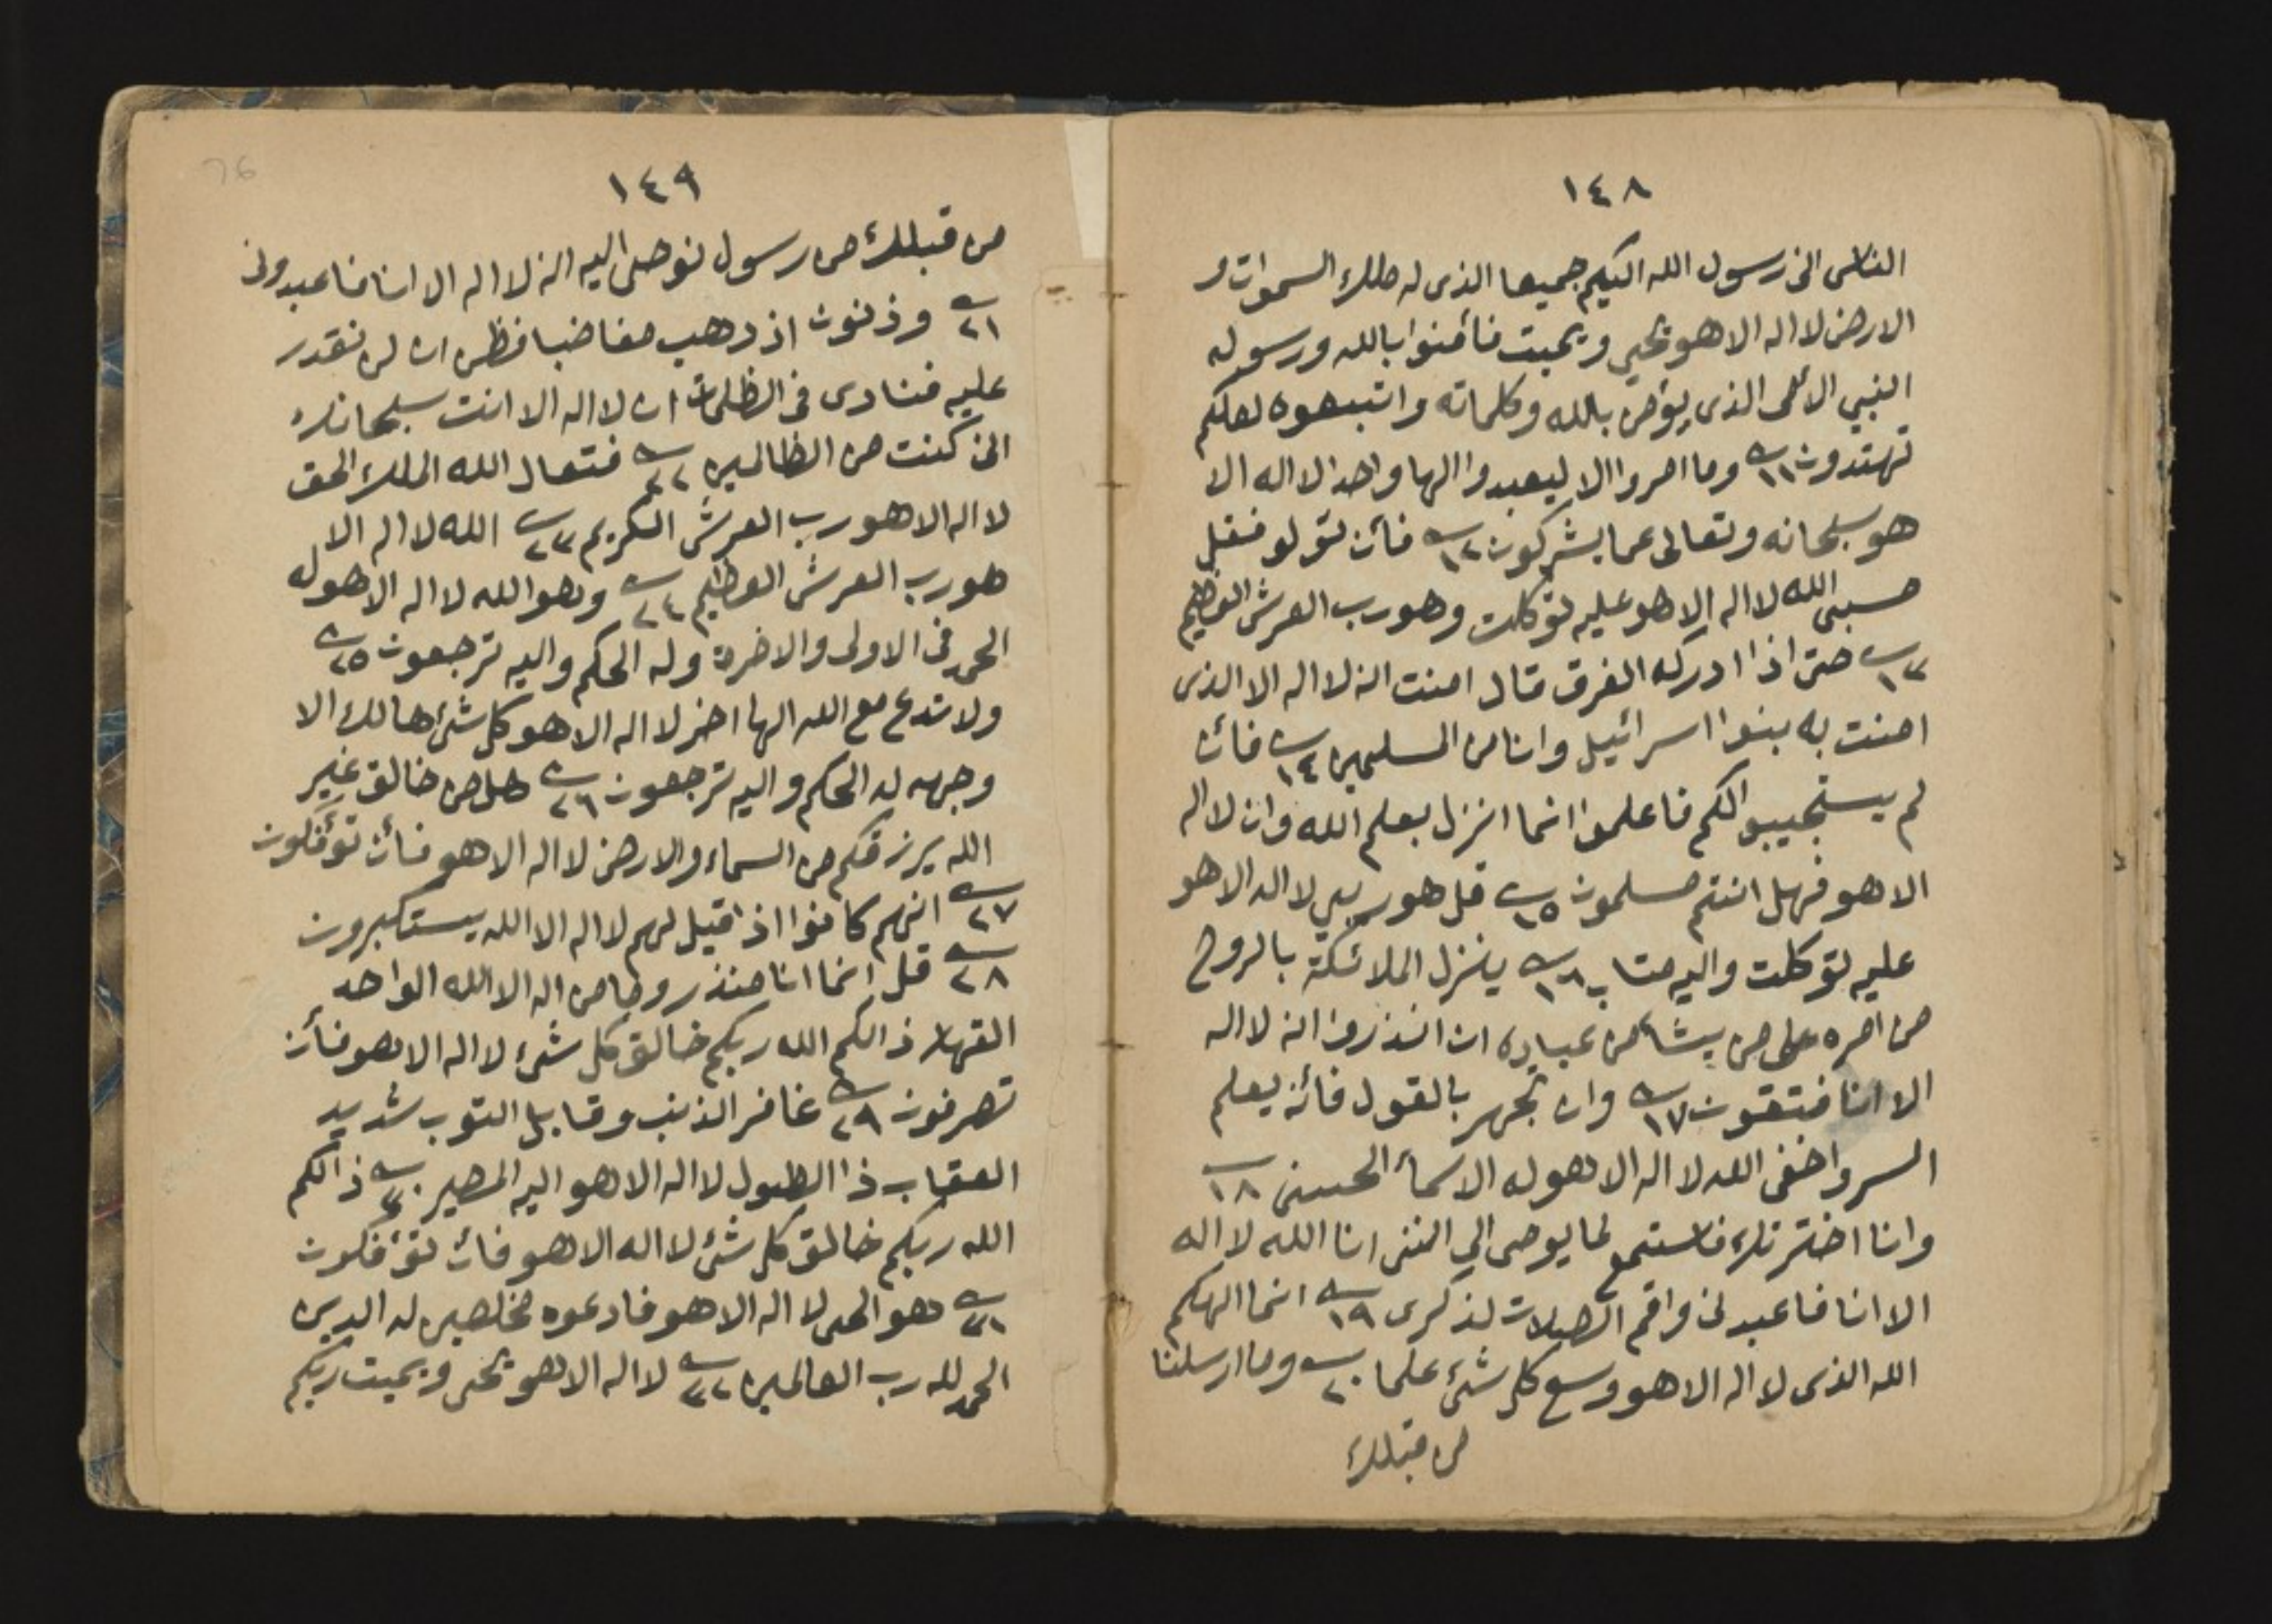 ١٤٨
الناس انى رسول الله اليكم جميعا الذى له ملك السموات و
الارض لا اله الا هو يحيي ويميت فأمنوا بالله ورسوله
النبي الأمى الذى يؤمن بالله وكلماته واتبعوه لعلكم
تهتدون ١١ وما امروا الا ليعبدوا الها واحد لا اله الا
هو سبحانه وتعالى عما يشركون ١٢ فأن تولو فقل
حسبى الله لا اله الا هو عليه توكلت وهو رب العرش العظيم
١٣ حتى اذا ادركه الغرق قال امنت انه لا اله الا الذى
امنت به بنوا اسرائيل وانا من المسلمين ١٤ فأن
لم يستجيبو الكم فاعلموا انما انزل بعلم الله وان لا اله
الا هو فهل انتم مسلمون ١٥ قل هو ربي لا اله الا هو
عليه توكلت واليه متاب ١٦ ينزل الملائكة بالروح
من امره على من يشأ من عباده ان انذروا انه لا اله
الا انا فتقون ١٧ وان تجهر بالقول فأنه يعلم
السر واخفى الله لا اله الا هو له الاسمأ الحسنى ١٨
وانا اخترتك فاستمع لما يوحى الي اننى انا الله لا اله
الا انا فاعبدنى واقم الصلات لذكرى ١٩ انما الهكم
الله الذى لا اله الا هو وسع كل شئ علما ٢٠ وما ارسلنا
من قبلك
76
١٤٩
من قبلك من رسول نوحى اليه انه لا اله الا انا فاعبدونى
٢١ وذنون اذ دهب مغاضبا فظن ان لن نقدر
عليه فنادى فى الظلمات ان لا اله الا انت سبحانك
انى كنت من الظالمين ٢٢ فتعال الله الملك الحق
لا اله الا هو رب العرش الكريم ٢٣ الله لا اله الا
هو رب العرش العظيم ٢٤ وهو الله لا اله الا هو له
الحمد فى الاولى والاخرة وله الحكم واليه ترجعون ٢٥
ولا تدع مع الله الها اخر لا اله الا هو كل شئ هالك الا
وجهه له الحكم واليه ترجعون ٢٦ هل من خالق غير
الله يرزقكم من السماء والارض لا اله الا هو فأن تؤفكون
٢٧ انهم كانوا اذا قيل لهم لا اله الا الله يستكبرون
٢٨ قل انما انا منذر وما من اله الا الله الواحد
القهار ذالكم الله ربكم خالق كل شئ لا اله الا هو فأن
تصرفون ٢٩ غافر الذنب وقابل التوب شديد
العقاب ذا الطول لا اله الا هو اليه المصير ٣٠ ذالكم
الله ربكم خالق كل شئ لا اله الا هو فأن تؤفكون
٣١ هو الحى لا اله الا هو فادعوه مخلصين له الدين
الحمد لله رب العالمين ٣٢ لا اله الا هو يحى ويميت ربكم